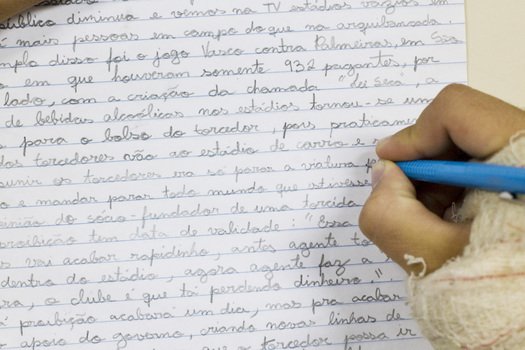 público diminua e vemos na TV estádios vazios em
mais pessoas em campo do que na arquibancada.
mplo disso foi o jogo Vasco contra Palmeiras, em São
o em que houveram somente 932 pagantes, por
lado, com a criação da chamada "lei seca", a
de bebidas alcoólicas nos estádios tornou-se um
para o bolso do torcedor, pois praticamen
dos torcedores vão ao estádio de carro e
unir os torcedores era só parar a viatura
o e mandar parar todo mundo que estivesse
inião do sócio-fundador de uma torcida
proibição tem data de validade: "Essa
s vai acabar rapidinho, antes agente to
dentro do estádio, agora agente faz a
ra, o clube é que tá perdendo dinheiro."
a proibição acabará um dia, mas pra acabar
apoio do governo, criando novas linhas de
que o torcedor possa ir